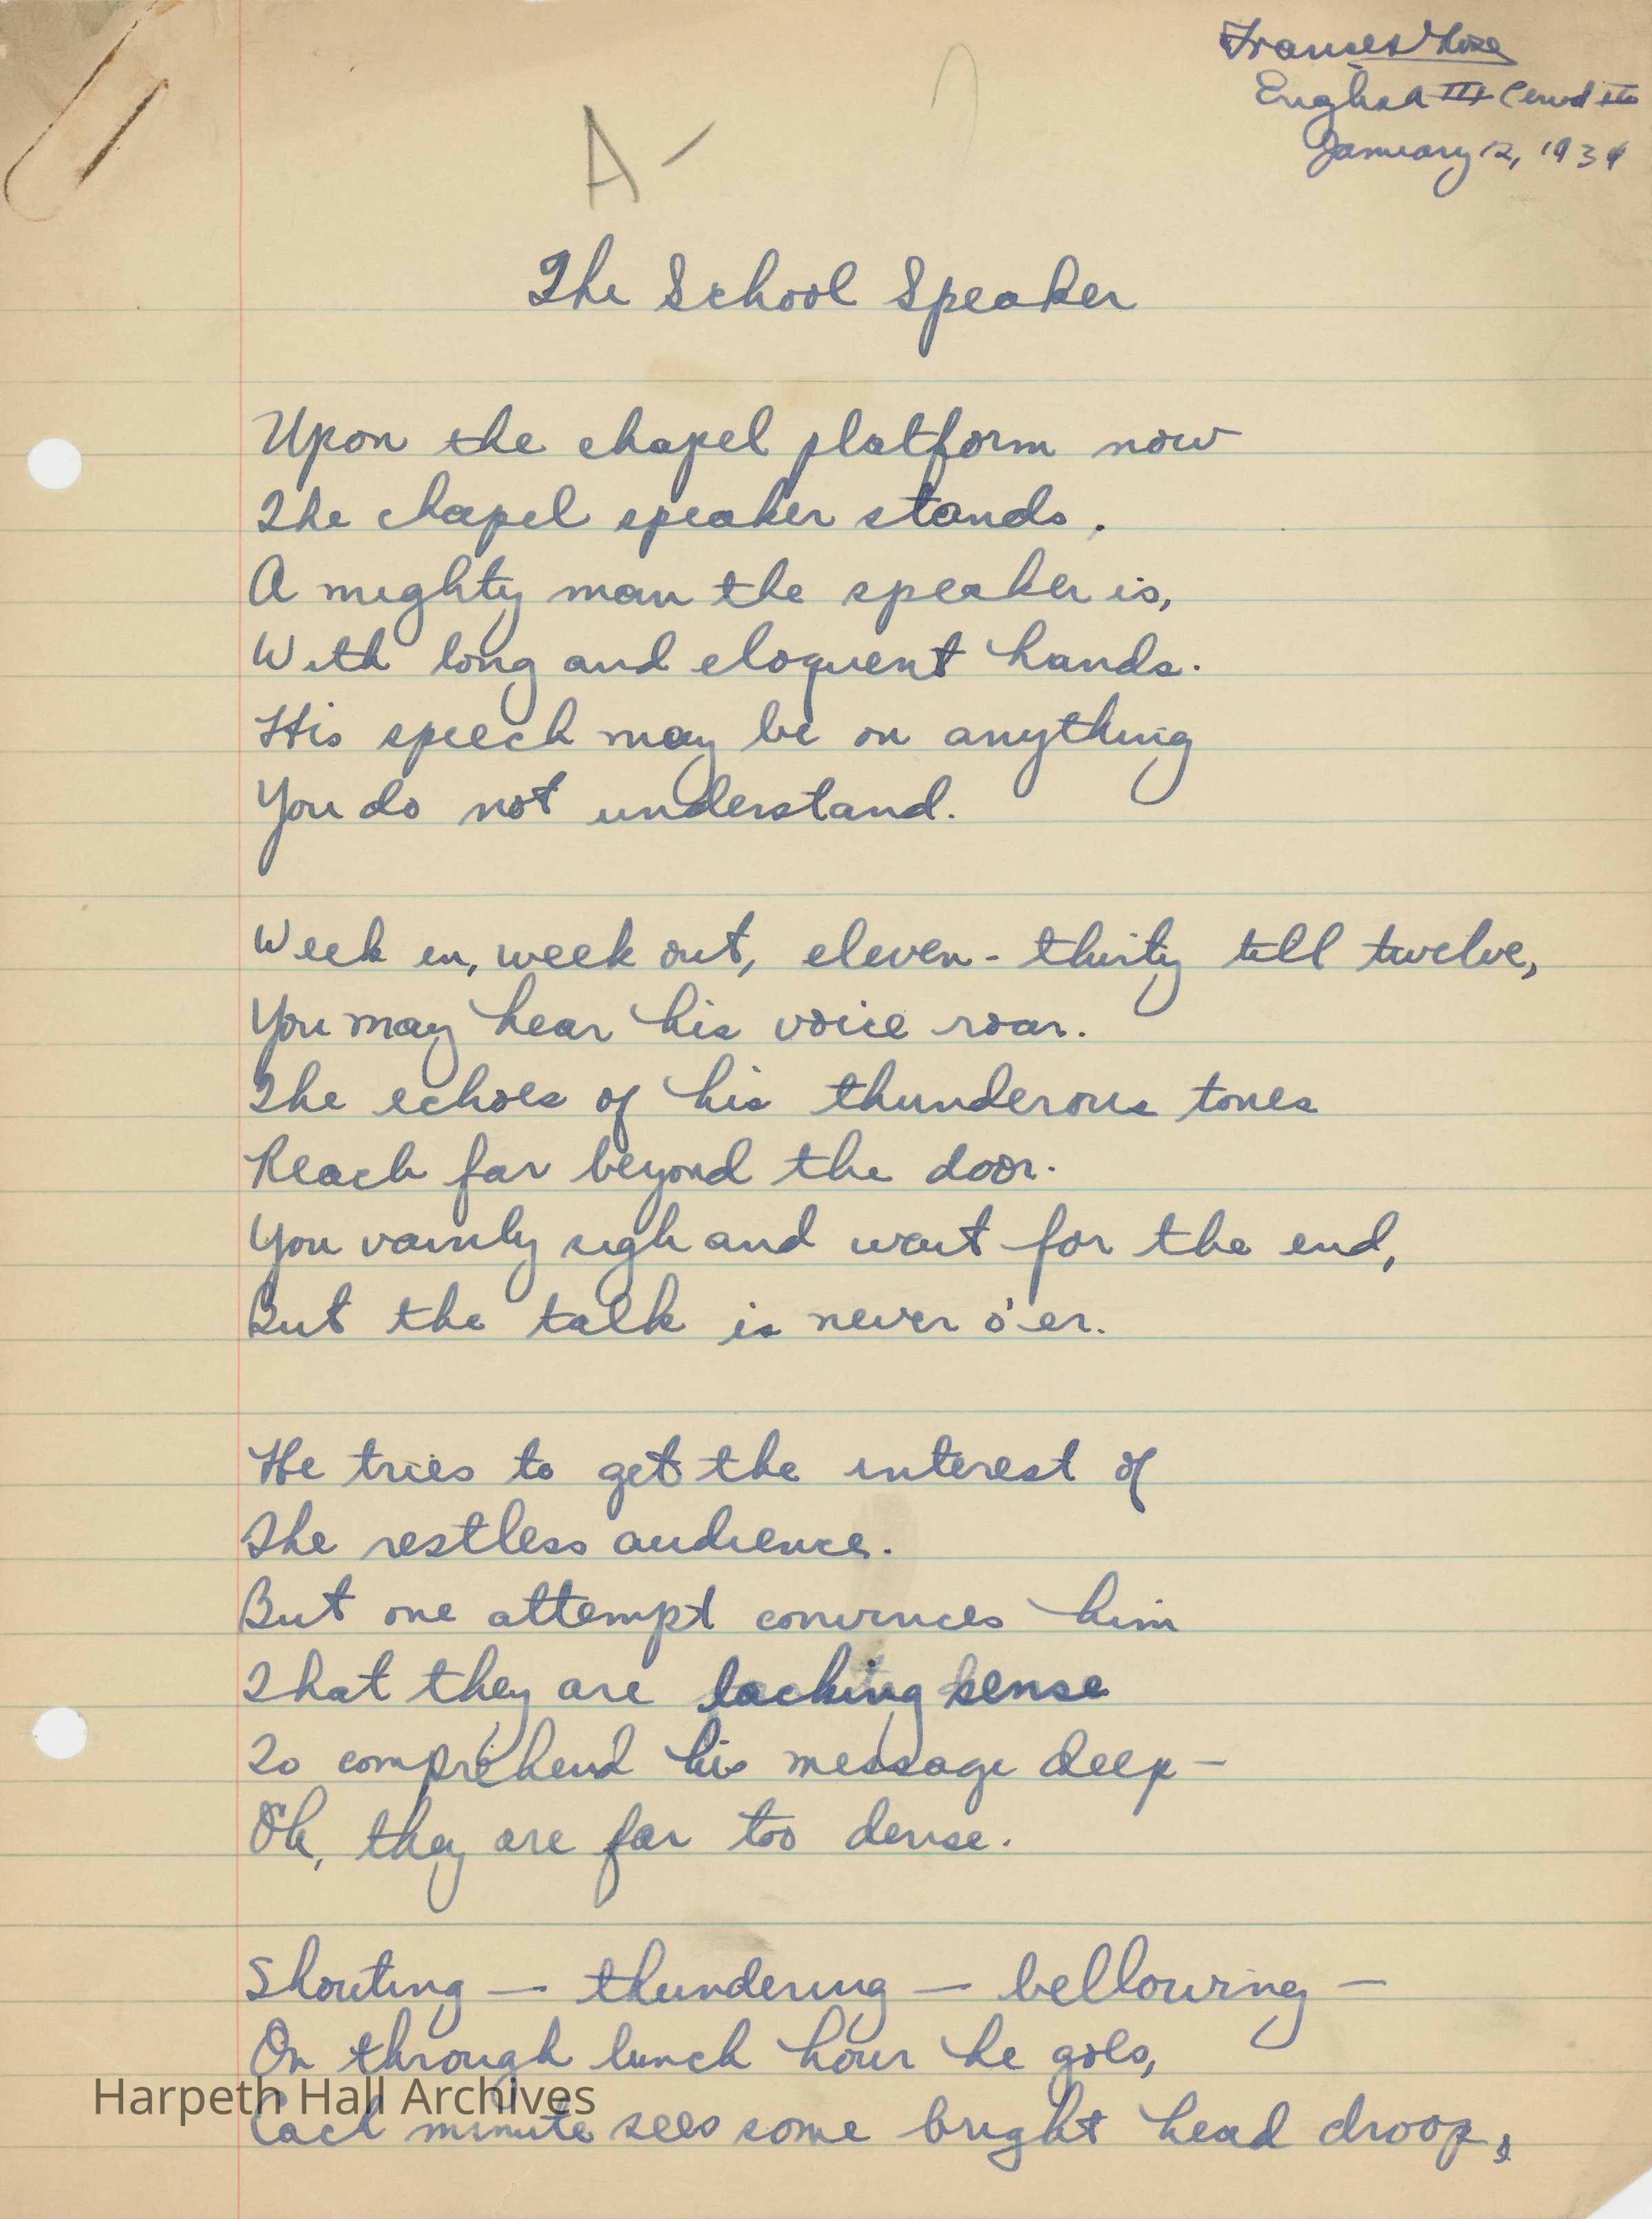 Frances
English III Period III
January 12, 1934
A-
The School Speaker
Upon the chapel platform now
The chapel speaker stands.
A mighty man the speaker is,
With long and eloquent hands.
His speech may be on anything
You do not understand.
Week in, week out, eleven-thirty till twelve,
You may hear his voice roar.
The echoes of his thunderous tones
Reach far beyond the door.
You vainly sigh and wait for the end,
But the talk is never o'er.
He tries to get the interest of
The restless audience.
But one attempt convinces him
That they are lacking sense
To comprehend his message deep—
Oh, they are far too dense.
Shouting — thundering — bellowing —
On through lunch hour he goes,
Harpeth Hall Archives
Each minute sees some bright head droop,